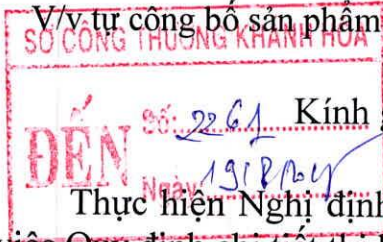 V/v tự công bố sản phẩm
SỞ CÔNG THƯƠNG KHÁNH HÒA
ĐẾN
Số: 2261
Kính
Ngày
Thực hiện Nghị định